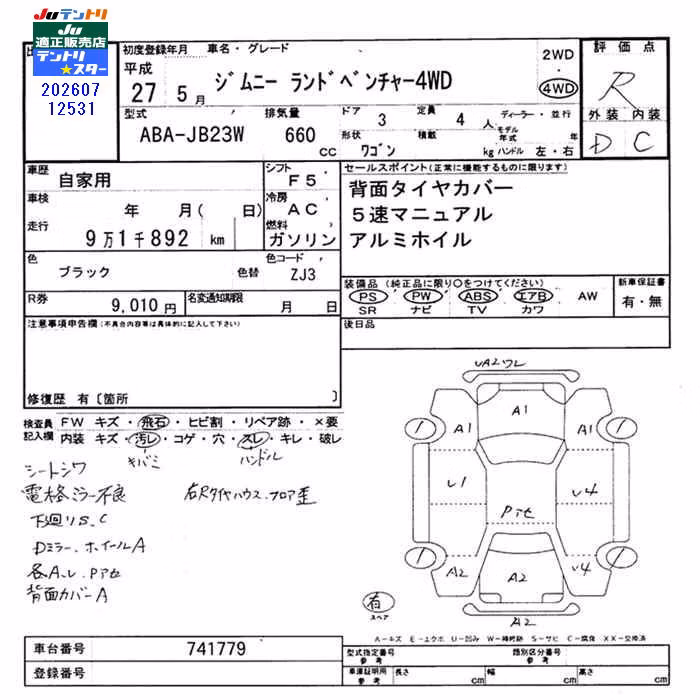 Juテントリ
Ju
適正販売店
テントリ
★スター
202607
12531
初度登録年月 車名・グレード
平成
27 5月
ジムニー ランドベンチャー4WD
2WD
・
4WD
評価点
R
外装 内装
D C
型式
ABA-JB23W
排気量
660
CC
ドア
3
定員
4 人
ディーラー・並行
モデル年式 年
形状
ワゴン
積載
kg ハンドル 左・右
車歴
自家用
シフト
F5
車検
年 月( 日)
冷房
AC
走行
9万1千892 km
燃料
ガソリン
色
ブラック
色替
色コード
ZJ3
R券
9,010円
名変通知期限
月 日
セールスポイント(正常に機能するものに限ります)
背面タイヤカバー
5速マニュアル
アルミホイル
装備品(純正品に限り○をつけてください)
PS・PW・ABS・エアB・AW
SR ナビ TV カワ
新車保証書
有・無
後日品
注意事項申告欄(不具合内容等は具体的に記入して下さい)
修復歴 有〔箇所 〕
検査員
記入欄
FW キズ・飛石・ヒビ割・リペア跡・×要
内装 キズ・汚レ・コゲ・穴・スレ・キレ・破レ
キバミ
ハンドル
シートシワ
電格ミラー不良
右Rタイヤハウス.フロア歪
下廻りS.C
Dミラー.ホイールA
各A.U.Pアセ
背面カバーA
UA2ワレ
A1
1
A1
A1
1
U1
U4
Pアセ
1
A2
A2
U4
1
有
スペア
A2
A-キズ E-エクボ U-凹み W-補修跡 S-サビ C-腐食 XX-交換済
車台番号
741779
登録番号
型式指定番号
参考
類別区分番号
参考
車庫証明用
参考
長さ cm
幅 cm
高さ cm